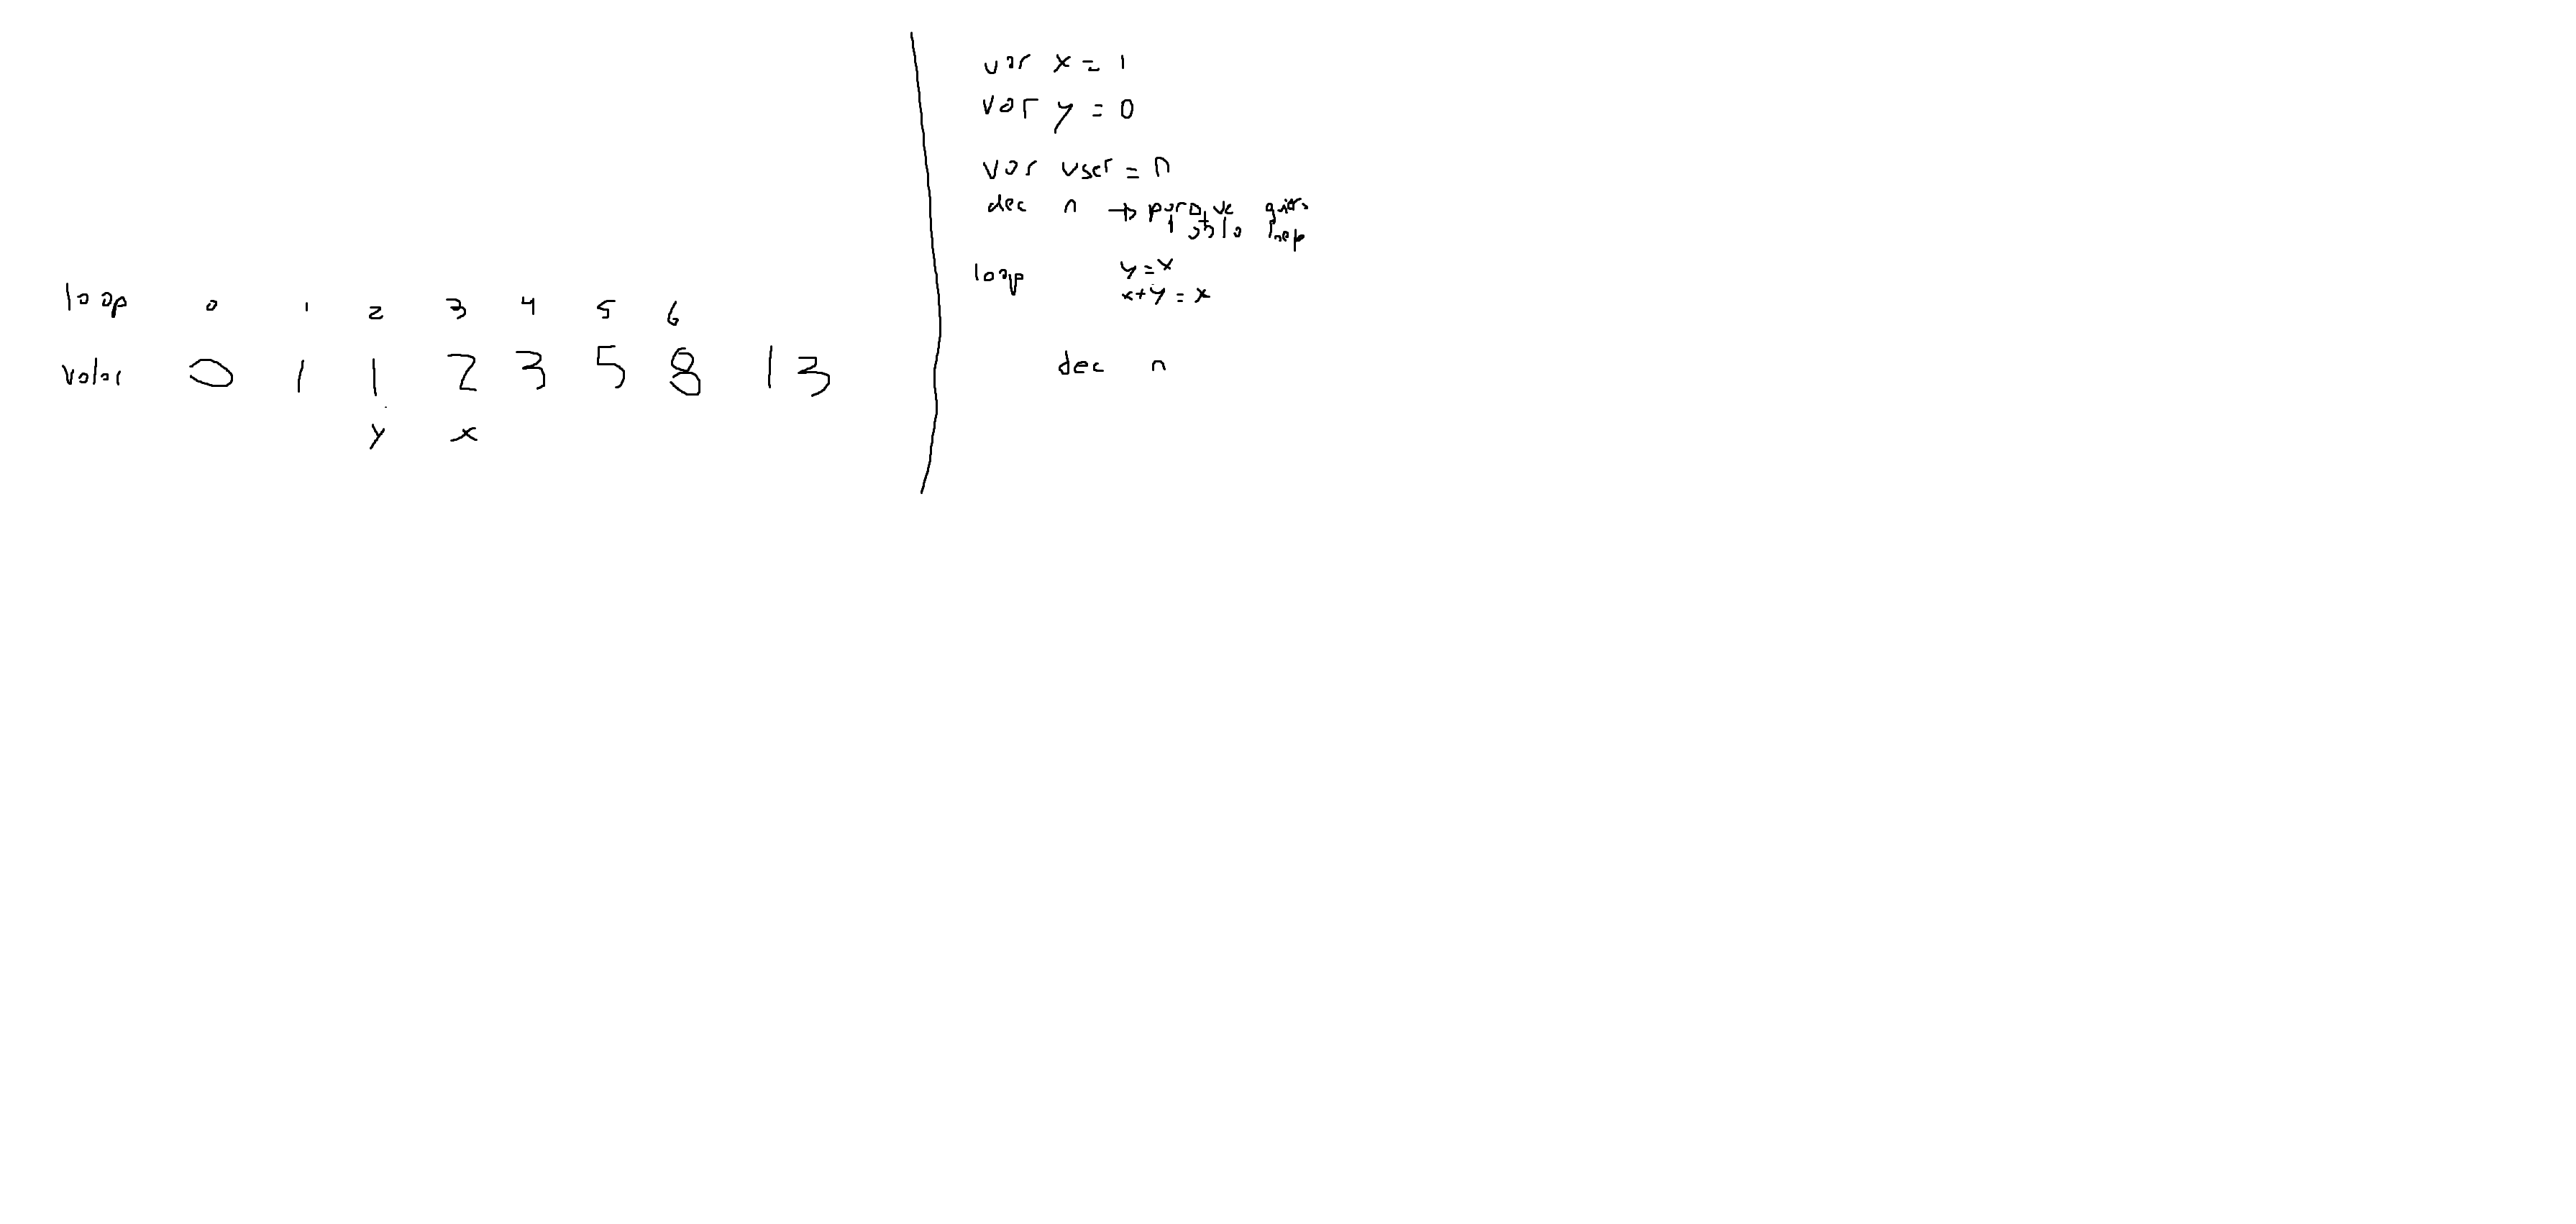 loop 0 1 2 3 4 5 6
valor 0 1 1 2 3 5 8 13
y x
var x = 1
var y = 0
var user = n
dec n →
loop y = x
x + y = x
dec n